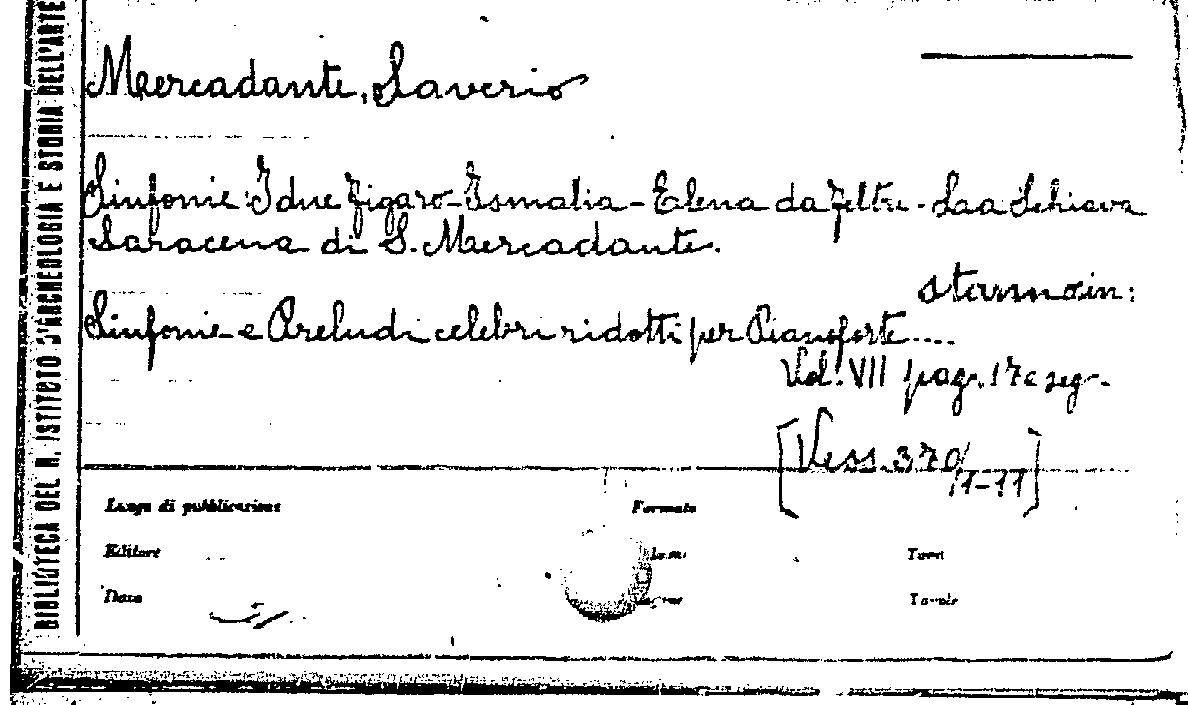 BIBLIOTECA DEL R. ISTITUTO D'ARCHEOLOGIA E STORIA DELL'ARTE
Mercadante, Saverio
Sinfonie: I due Figaro - Ismalia - Elena da Feltre - Laa Schiava
Saracena di S. Mercadante.
stanno in:
Sinfonie e Preludi celebri ridotti per Pianoforte....
Vol. VII pag. 17 e seg.
[Vess. 370/1-11]
Luogo di pubblicazione
Formato
Editore
Tomi
Data
Tavole